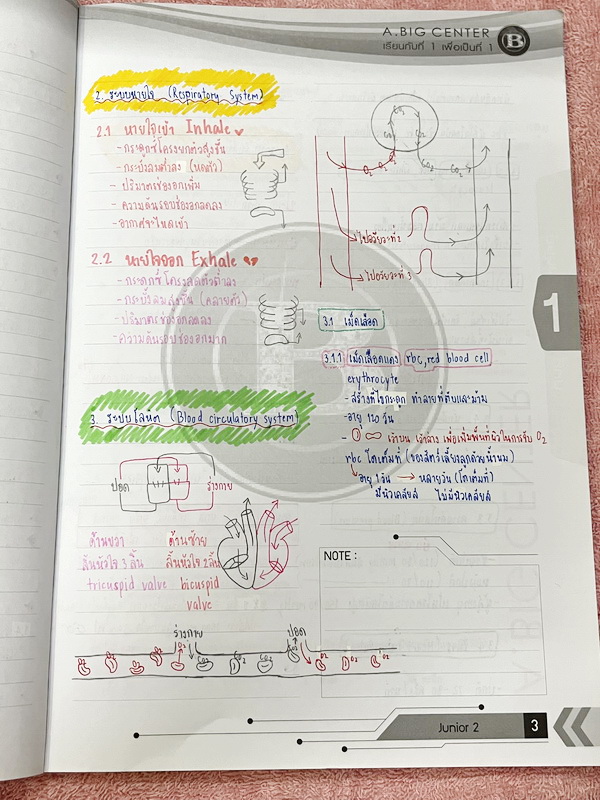 A.BIG CENTER
เรียนกับที่ 1 เพื่อเป็นที่ 1
B
2. ระบบหายใจ (Respiratory System)
2.1 หายใจเข้า Inhale
- กระดูกซี่โครงยกตัวสูงขึ้น
- กระบังลมต่ำลง (หดตัว)
- ปริมาตรช่องอกเพิ่ม
- ความดันรอบช่องอกลดลง
- อากาศจะไหลเข้า
2.2 หายใจออก Exhale
- กระดูกซี่โครงลดตัวต่ำลง
- กระบังลมสูงขึ้น (คลายตัว)
- ปริมาตรช่องอกลดลง
- ความดันรอบช่องอกมาก
3. ระบบโลหิต (Blood circulatory system)
ปอด ร่างกาย
ด้านขวา ด้านซ้าย
ลิ้นหัวใจ 3 ลิ้น ลิ้นหัวใจ 2 ลิ้น
tricuspid valve bicuspid
valve
ร่างกาย ปอด
O2 O2 O2 CO2 CO2 CO2 O2 O2 O2
CO2 O2
O2 O2 O2 CO2 CO2
ไปอวัยวะที่ 2
ไปอวัยวะที่ 3
3.1 เม็ดเลือด
3.1.1 เม็ดเลือดแดง rbc, red blood cell
erythrocyte
- สร้างที่ไขกระดูก ทำลายที่ตับและม้าม
- อายุ 120 วัน
- เว้าบน เว้าล่าง เพื่อเพิ่มพื้นที่ผิวในการรับ O2
rbc โตเต็มที่ (ของสัตว์เลี้ยงลูกด้วยน้ำนม)
อายุ 1 วัน → หลายวัน (โตเต็มที่)
มีนิวเคลียส ไม่มีนิวเคลียส
1
NOTE :
Junior 2
3